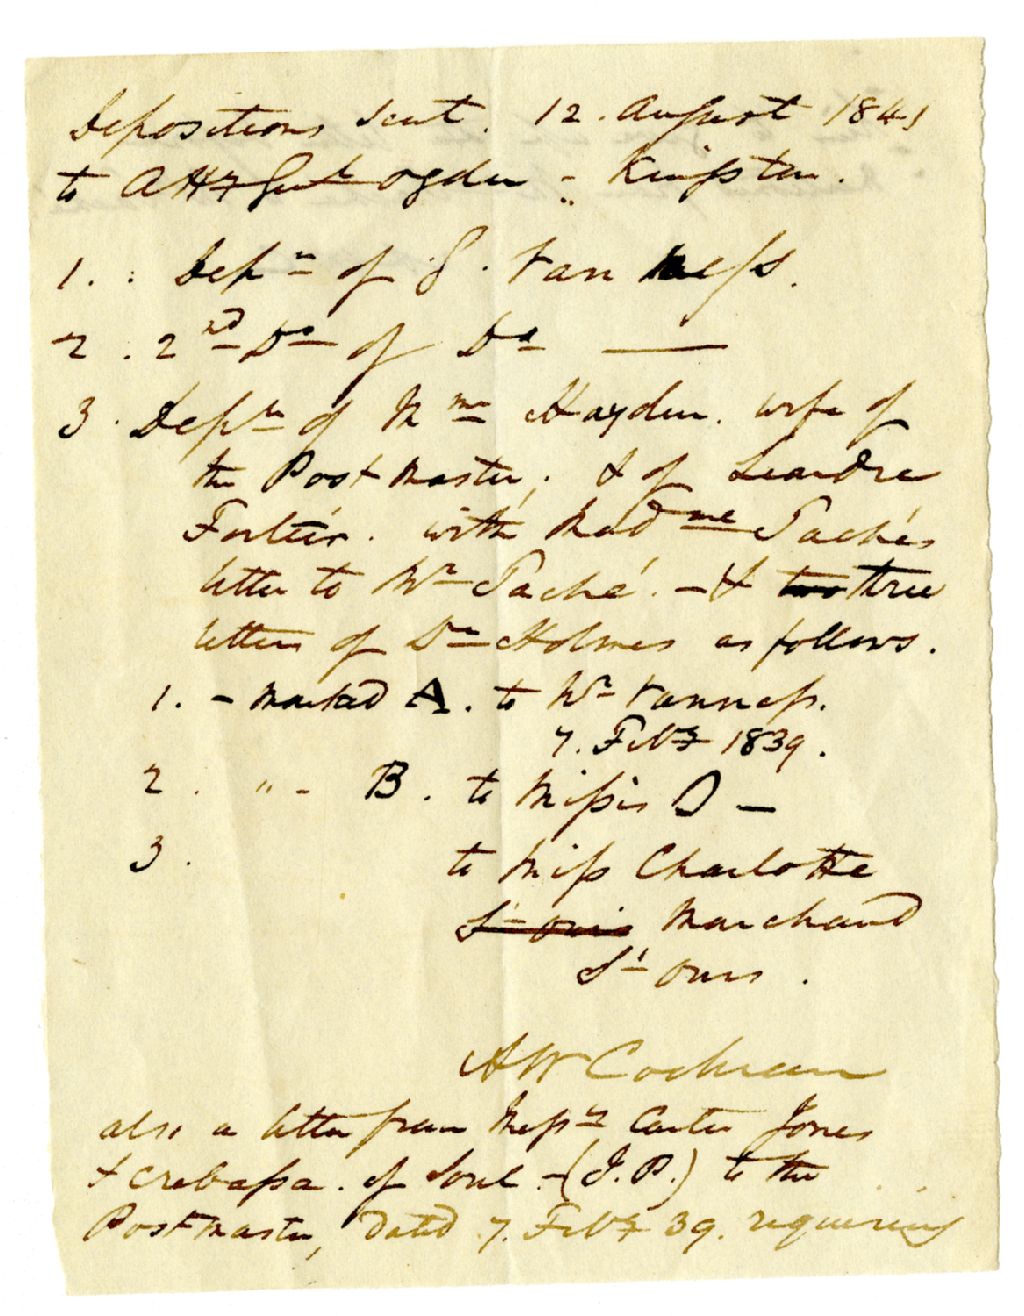 Depositions sent. 12. August 1841
to AttY Genl. Ogden - Kingston.
1. : Depn of G. Van Ness.
2. 2nd Do of Do —
3. Depn of Mme Hayden. wife of
the Post Master; & of Leandre
Fortier. with Madme Taché's
letter to Mr Taché. - & two three
letters of Dr Holmes as follows.
1. - marked A. to Mr Vanness.
7. Feby 1839.
2. " - B. to Missis D —
3. to Miss Charlotte
St Ours Marchand
St Ours.
AW Cochran
also a letter from Messrs Carter Jones
& Crebassa. of Sorel - (J.P.) to the
Postmaster, Dated 7. Feby 39. requiring